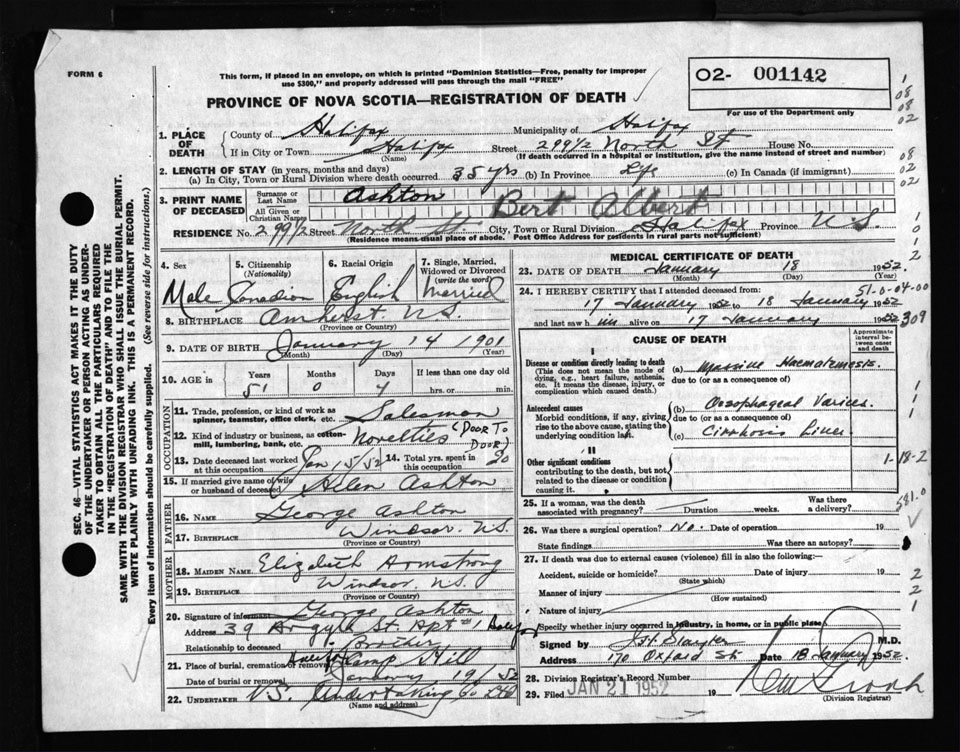 FORM 6
This form, if placed in an envelope, on which is printed "Dominion Statistics—Free, penalty for improper
use $300," and properly addressed will pass through the mail "FREE"
02- 001142
PROVINCE OF NOVA SCOTIA—REGISTRATION OF DEATH
For use of the Department only
1. PLACE OF DEATH
County of Halifax Municipality of Halifax
If in City or Town Halifax Street 299½ North St House No.
(Name) (If death occurred in a hospital or institution, give the name instead of street and number)
2. LENGTH OF STAY (in years, months and days)
(a) In City, Town or Rural Division where death occurred 35 yrs (b) In Province Life (c) In Canada (if immigrant)
3. PRINT NAME OF DECEASED
Surname or Last Name Ashton
All Given or Christian Names Bert Albert
RESIDENCE No. 299½ Street North St. City, Town or Rural Division Halifax Province N.S.
(Residence means usual place of abode. Post Office Address for residents in rural parts not sufficient)
4. Sex
Male
5. Citizenship (Nationality)
Canadian
6. Racial Origin
English
7. Single, Married, Widowed or Divorced (write the word)
Married
8. BIRTHPLACE Amherst N.S.
(Province or Country)
9. DATE OF BIRTH January 14 1901
(Month) (Day) (Year)
10. AGE in Years Months Days If less than one day old
51 0 4 hrs. or min.
OCCUPATION
11. Trade, profession, or kind of work as spinner, teamster, office clerk, etc. Salesman
12. Kind of industry or business, as cotton-mill, lumbering, bank, etc. Novelties (Door To Door)
13. Date deceased last worked at this occupation Jan 15/52
14. Total yrs. spent in this occupation 20
15. If married give name of wife or husband of deceased Helen Ashton
FATHER
16. NAME George Ashton
17. BIRTHPLACE Windsor. N.S.
(Province or Country)
MOTHER
18. MAIDEN NAME Elizabeth Armstrong
19. BIRTHPLACE Windsor, N.S.
(Province or Country)
20. Signature of informant George Ashton
Address 39 Argyle St. Apt #1 Halifax
Relationship to deceased Brother
21. Place of burial, cremation or removal Halifax Camp Hill
Date of burial or removal January 19 1952
22. UNDERTAKER N.S. Undertaking Co Ltd
(Name and address)
MEDICAL CERTIFICATE OF DEATH
23. DATE OF DEATH January 18 1952.
(Month) (Day) (Year)
51-0-04-00
24. I HEREBY CERTIFY that I attended deceased from:
17 January 1952 to 18 January 1952
and last saw him alive on 17 January 1952
309
CAUSE OF DEATH
Approximate interval between onset and death
I
Disease or condition directly leading to death
(This does not mean the mode of dying, e.g., heart failure, asthenia, etc. It means the disease, injury, or complication which caused death.)
(a) Massive Haematemesis.
due to (or as a consequence of)
Antecedent causes
Morbid conditions, if any, giving rise to the above cause, stating the underlying condition last.
(b) Oesophageal Varices.
due to (or as a consequence of)
(c) Cirrhosis Liver.
II
Other significant conditions
contributing to the death, but not related to the disease or condition causing it.
1-18-2
25. If a woman, was the death associated with pregnancy? Duration weeks. Was there a delivery?
581.0
26. Was there a surgical operation? No. Date of operation 19
State findings Was there an autopsy?
27. If death was due to external causes (violence) fill in also the following:—
Accident, suicide or homicide? Date of injury 19
(State which)
Manner of injury
(How sustained)
Nature of injury
Specify whether injury occurred in industry, in home, or in public place
Signed by M.D.
Address 170 Oxford St. Date 18 January 1952.
28. Division Registrar's Record Number
29. Filed JAN 21 1952 19
(Division Registrar)
SEC. 46—VITAL STATISTICS ACT MAKES IT THE DUTY
OF THE UNDERTAKER OR PERSON ACTING AS UNDERTAKER TO OBTAIN ALL THE PARTICULARS REQUIRED
IN THE "REGISTRATION OF DEATH" AND TO FILE THE
SAME WITH THE DIVISION REGISTRAR WHO SHALL ISSUE THE BURIAL PERMIT.
WRITE PLAINLY WITH UNFADING INK. THIS IS A PERMANENT RECORD.
Every item of information should be carefully supplied. (See reverse side for instructions.)